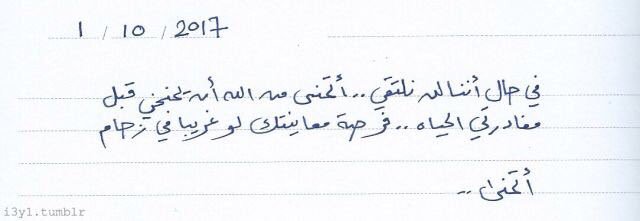 1 / 10 / 2017
في حال أننا لن نلتقي .. أتمنى من الله أن يمنحني قبل
مغادرتي الحياه .. فرصة معاينتك لو غريبا في زحام
أتمنى ..
i3yl.tumblr